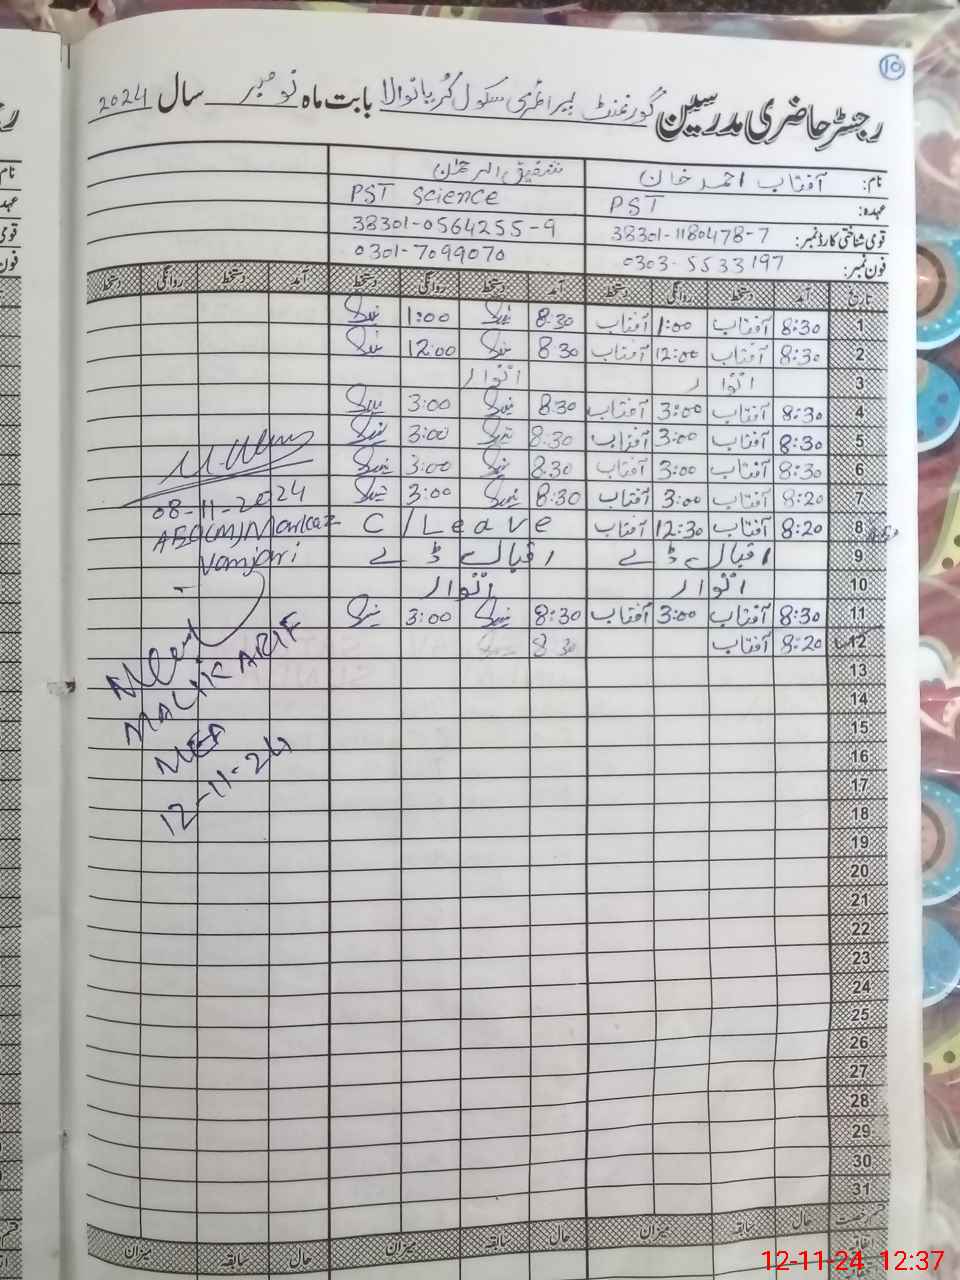 10
رجسٹر حاضری مدرسین گورنمنٹ پرائمری سکول بابت ماہ نومبر سال 2024
نام: آفتاب احمد خان شفیق الرحمان
عہدہ: PST PST Science
قومی شناختی کارڈ نمبر: 38301-1180478-7 38301-0564255-9
فون نمبر: 0303-5533197 0301-7099070
تاریخ آمد دستخط روانگی دستخط آمد دستخط روانگی دستخط آمد دستخط روانگی دستخط
1 8:30 آفتاب 1:00 آفتاب 8:30 1:00
2 8:30 آفتاب 12:00 آفتاب 8:30 12:00
3 اتوار اتوار
4 8:30 آفتاب 3:00 آفتاب 8:30 3:00
5 8:30 آفتاب 3:00 آفتاب 8:30 3:00
6 8:30 آفتاب 3:00 آفتاب 8:30 3:00
7 8:20 آفتاب 3:00 آفتاب 8:30 3:00
8 8:20 آفتاب 12:30 آفتاب C/Leave
9 اقبال ڈے اقبال ڈے
10 اتوار اتوار
11 8:30 آفتاب 3:00 آفتاب 8:30 3:00
12 8:20 آفتاب 8:30
13
14
15
16
17
18
19
20
21
22
23
24
25
26
27
28
29
30
31
08-11-2024
AEO(M) Markaz
MALIK ARIF
MEA
12-11-24
قسم رخصت حال سابقہ میزان حال سابقہ میزان حال سابقہ میزان
12-11-24 12:37